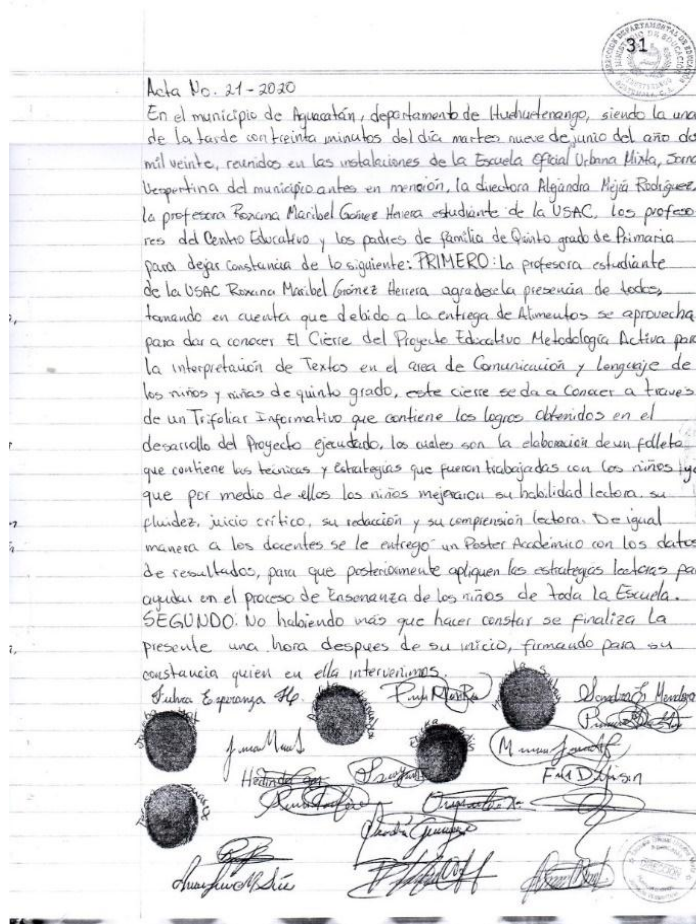 31
Acta No. 21-2020
En el municipio de Aguacatán, departamento de Huehuetenango, siendo la una
de la tarde con treinta minutos del día martes nueve de junio del año do
mil veinte, reunidos en las instalaciones de la Escuela Oficial Urbana Mixta, Jorna
Vespertina del municipio antes en mención, la directora Alejandra Mejía Rodríguez,
la profesora Roxana Maribel Gómez Herrera estudiante de la USAC, los profeso
res del Centro Educativo y los padres de familia de Quinto grado de Primaria
para dejar constancia de lo siguiente: PRIMERO: La profesora estudiante
de la USAC Roxana Maribel Gómez Herrera agradece la presencia de todos,
tomando en cuenta que debido a la entrega de Alimentos se aprovecha
para dar a conocer El Cierre del Proyecto Educativo Metodología Activa para
la interpretación de Textos en el area de Comunicación y Lenguaje de
los niños y niñas de quinto grado, este cierre se da a conocer a traves
de un Trifoliar Informativo que contiene los logros obtenidos en el
desarrollo del Proyecto ejecutado, los cuales son la elaboración de un folleto
que contiene las técnicas y estrategias que fueron trabajadas con los niños ya
que por medio de ellos los niños mejoraron su habilidad lectora, su
fluidez, juicio crítico, su redacción y su comprensión lectora. De igual
manera a los docentes se le entregó un Poster Academico con los datos
de resultados, para que posteriormente apliquen las estrategias lectoras pa
ayudar en el proceso de Ensenanza de los niños de toda la Escuela.
SEGUNDO: No habiendo más que hacer constar se finaliza la
presente una hora despues de su inicio, firmando para su
constancia quien en ella intervenimos.
Esperanza